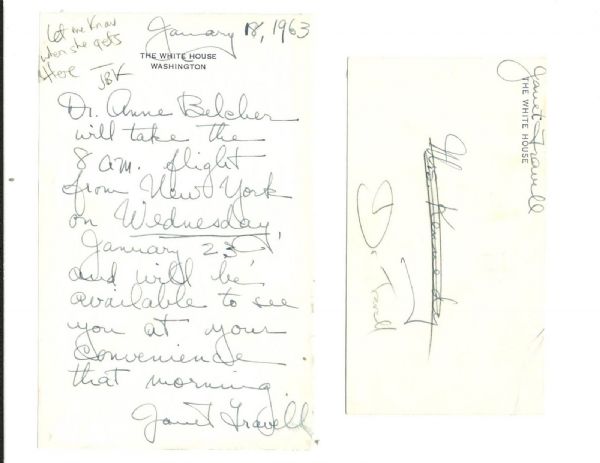 Let me know
when she gets
Here JBK
January 18, 1963
THE WHITE HOUSE
WASHINGTON
Dr. Anne Belcher
will take the
8 a.m. flight
from New York
on Wednesday
January 23
and will be
available to see
you at your
convenience
that morning
Janet Travell
Janet Travell
THE WHITE HOUSE
Mrs Kennedy
Dr Travell